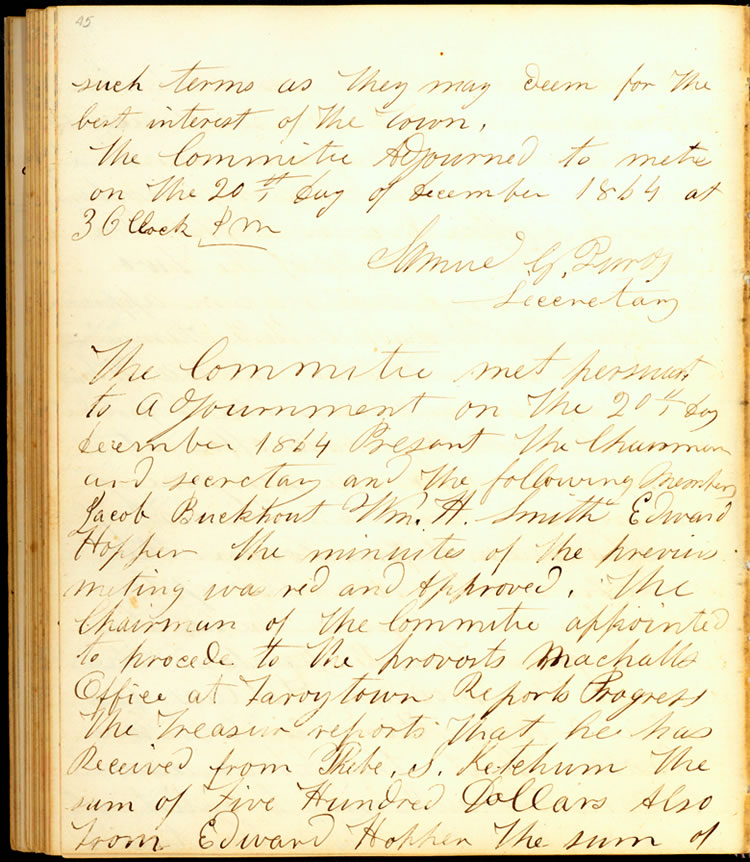 45
such terms as they may deem for the
best interest of the town.
The Committie Adjourned to mete
on the 20th day of december 1864 at
3 OClock P m
Samuel G. Purdy
Seccretary
The Committie met persuant
to Adjournment on the 20th day
december 1864 Present the Chairman
and secretary and the following Members
Jacob Buckhout Wm. H. Smith Edward
Hopper the minuites of the previus
meting was red and Approved. The
Chairman of the Committie appointed
to procede to the provosts Machalls
Office at Taroytown Reports Progress
The Treasur reports that he has
Received from Phebe. S. Ketchum the
sum of Five Hundred Dollars Also
From Edward Hopper the sum of